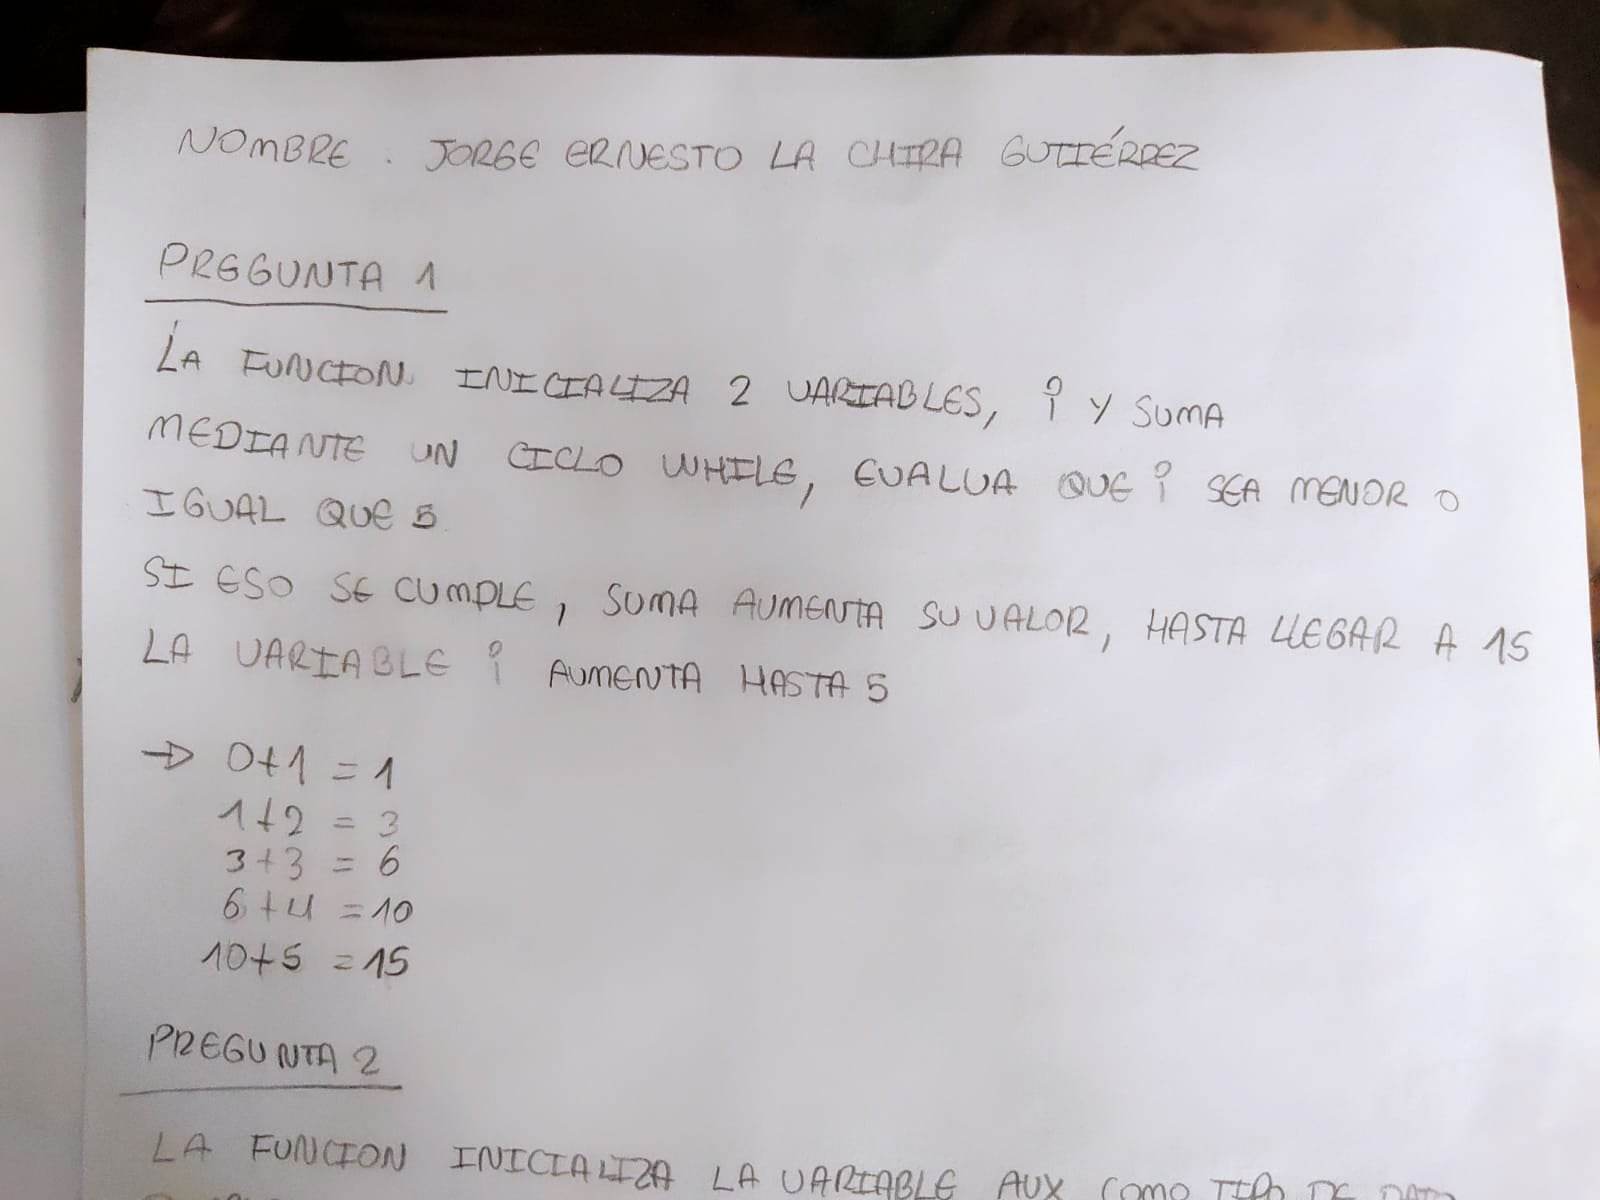 NOMBRE . JORGE ERNESTO LA CHIRA GUTIÉRREZ
PREGUNTA 1
LA FUNCION INICIALIZA 2 VARIABLES, i Y SUMA
MEDIANTE UN CICLO WHILE, EVALUA QUE i SEA MENOR O
IGUAL QUE 5
SI ESO SE CUMPLE, SUMA AUMENTA SU VALOR, HASTA LLEGAR A 15
LA VARIABLE i AUMENTA HASTA 5
→ 0+1 = 1
1+2 = 3
3+3 = 6
6+4 = 10
10+5 = 15
PREGUNTA 2
LA FUNCION INICIALIZA LA VARIABLE AUX COMO TIPO DE